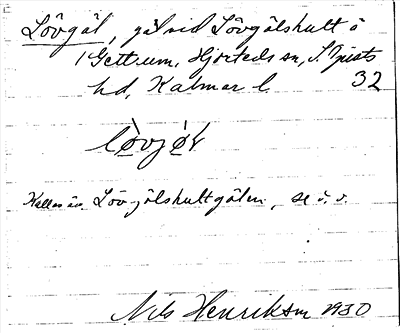 Lövgöl, göl vid Lövgölshult å
1 Gettrum, Hjorteds sn, S. Tjusts
hd, Kalmar l. 32
lòvjø̀l
Kallas äv. Lövgölshultgölen, se d. o.
Nils Henrikson 1930